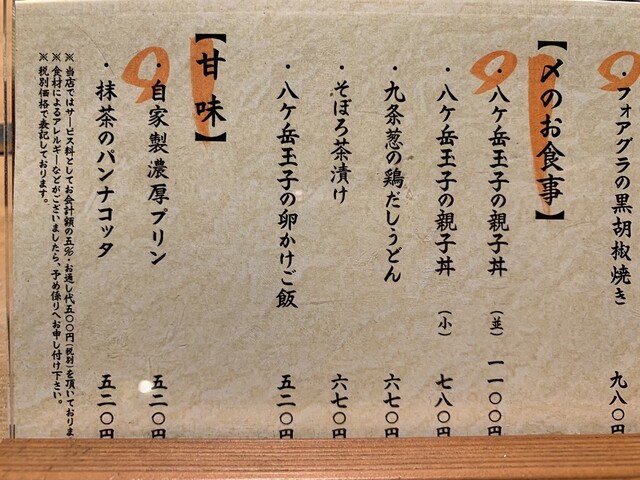 ・フォアグラの黒胡椒焼き 九八〇円
【〆のお食事】
・八ケ岳玉子の親子丼（並） 一一〇〇円
・八ケ岳玉子の親子丼（小） 七八〇円
・九条葱の鶏だしうどん 六七〇円
・そぼろ茶漬け 六七〇円
・八ケ岳玉子の卵かけご飯 五二〇円
【甘味】
・自家製濃厚プリン 五二〇円
・抹茶のパンナコッタ 五二〇円
※当店ではサービス料としてお会計額の五％・お通し代五〇〇円（税別）を頂いておりま
※食材によるアレルギーなどがございましたら、予め係りへお申し付け下さい。
※税別価格で表記しております。